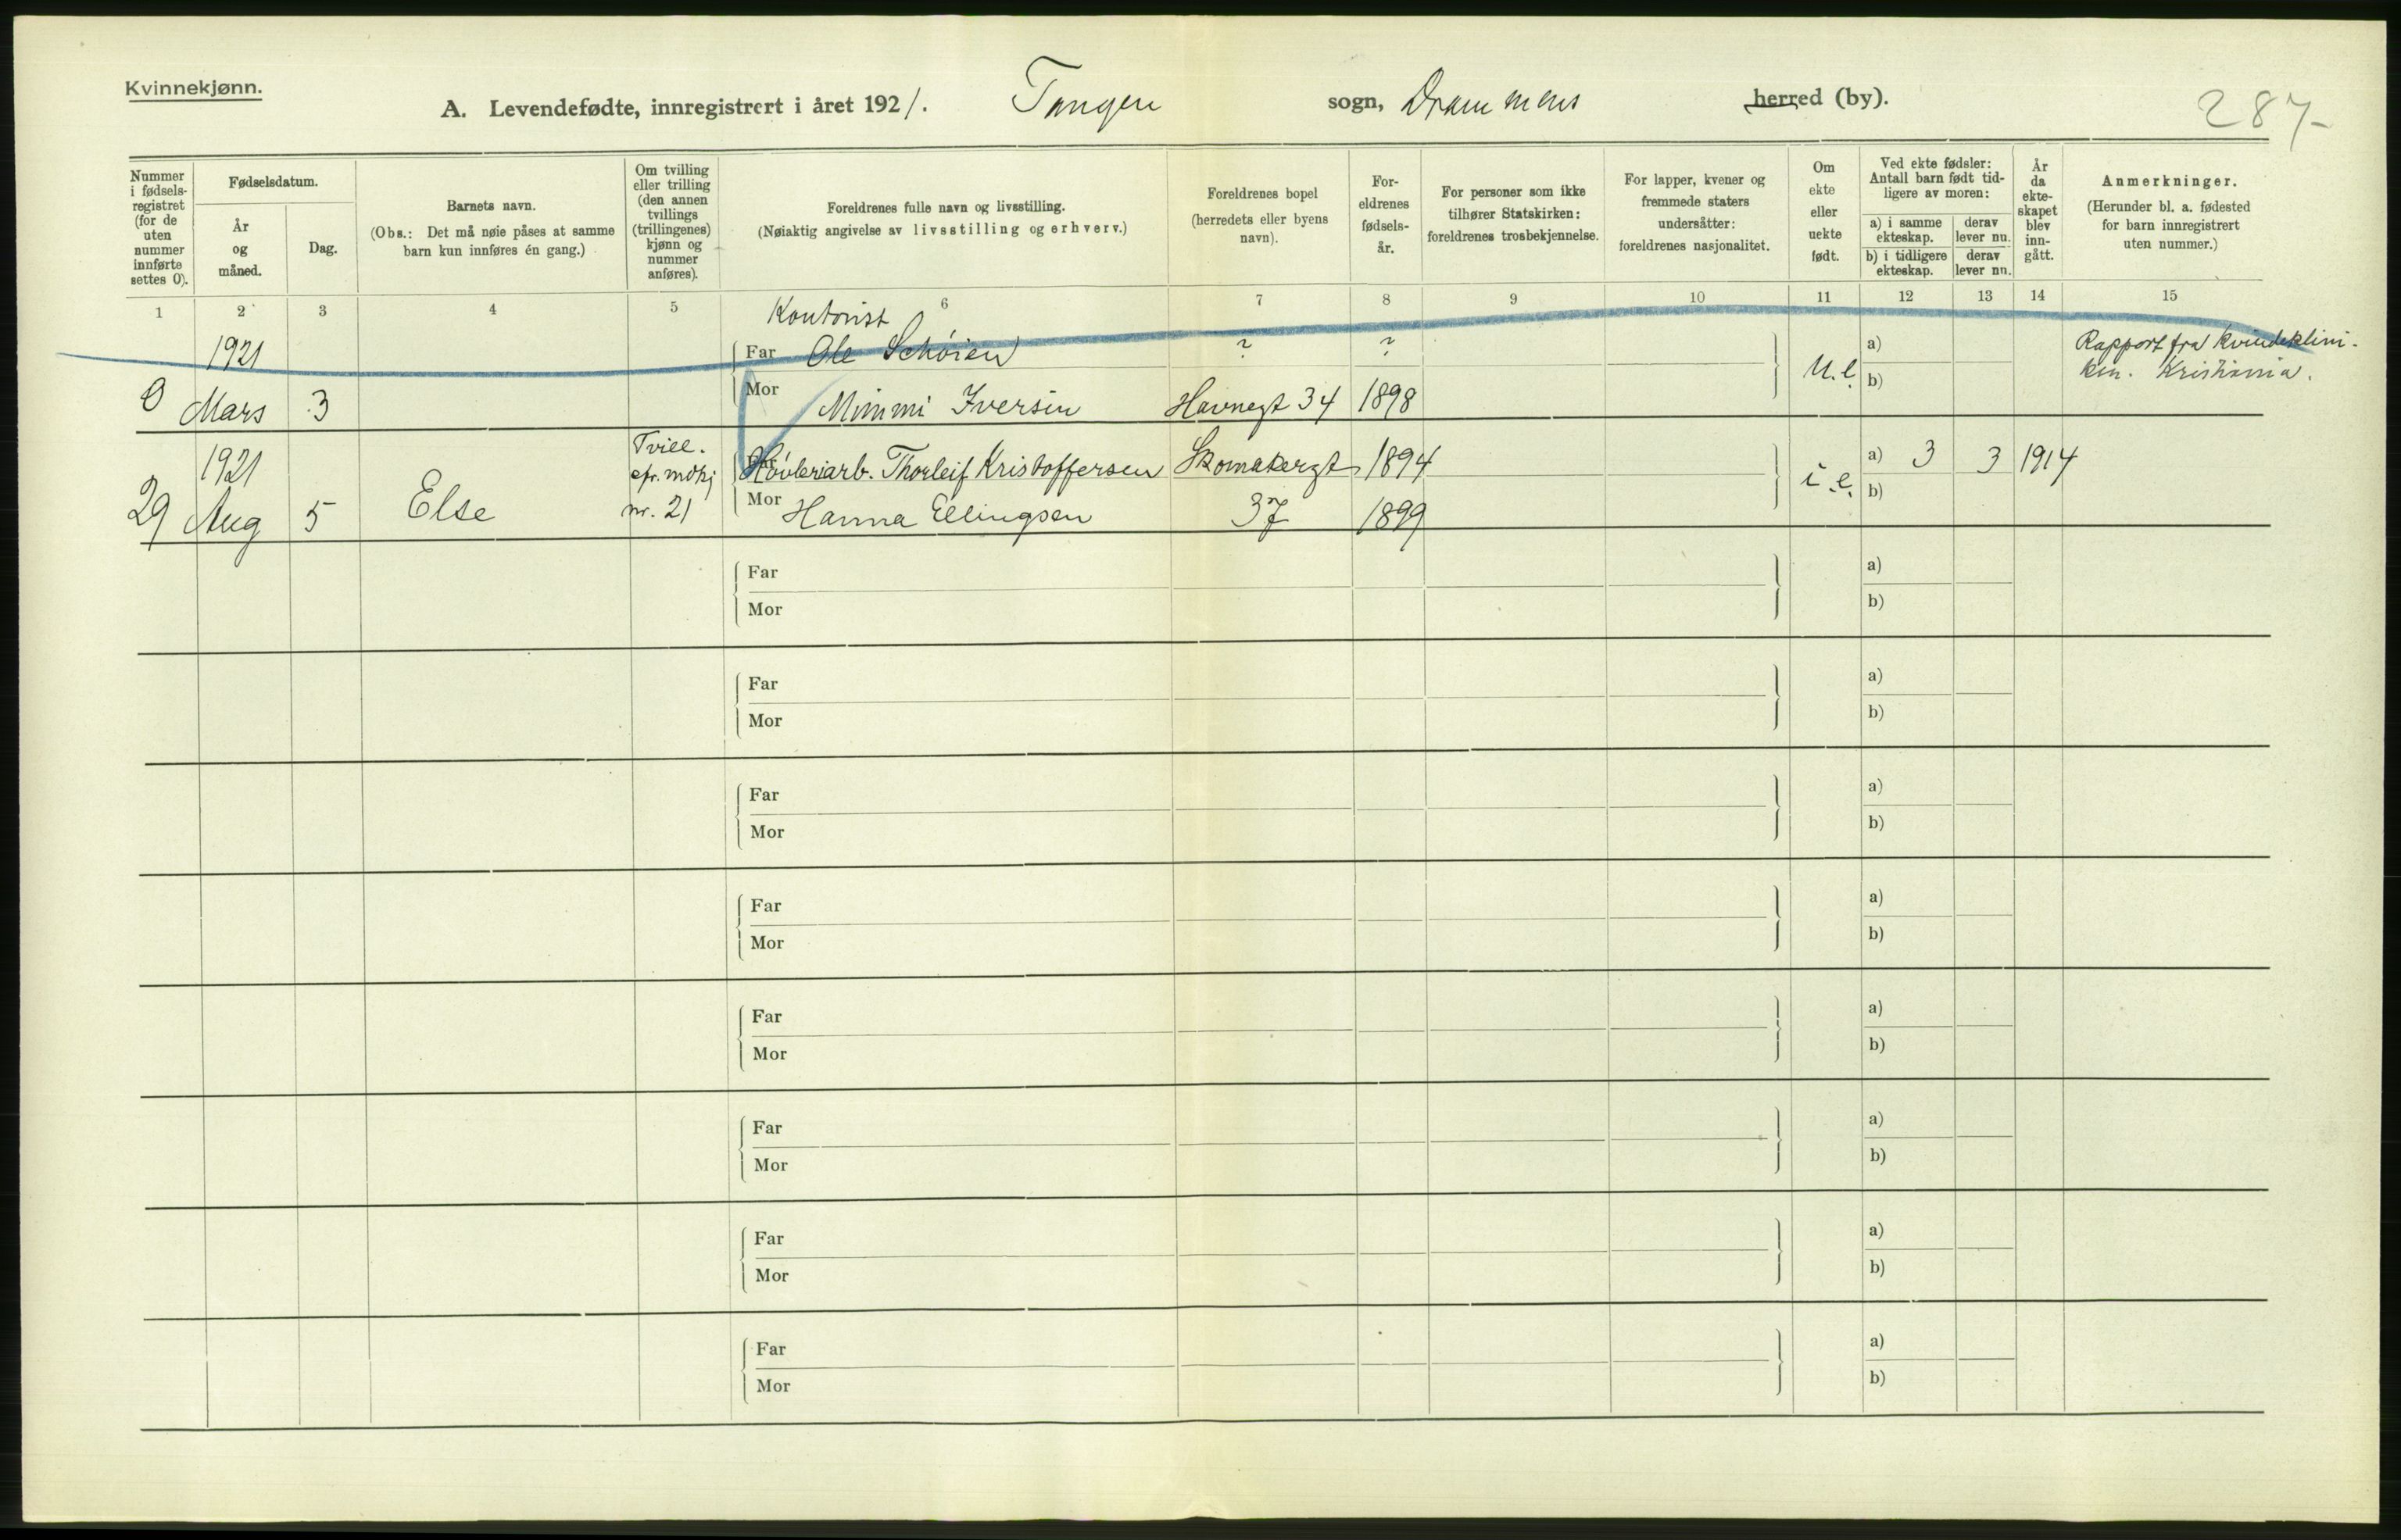 Kvinnekjønn.
A. Levendefødte, innregistrert i året 1921. Tangen sogn, Drammens herred (by).
287
Nummer i fødsels-registret (for de uten nummer innførte settes 0).
Fødselsdatum.
År og måned.
Dag.
Barnets navn.
(Obs.: Det må nøie påses at samme barn kun innføres én gang.)
Om tvilling eller trilling (den annen tvillings (trillingenes) kjønn og nummer anføres).
Foreldrenes fulle navn og livsstilling.
(Nøiaktig angivelse av livsstilling og erhverv.)
Foreldrenes bopel
(herredets eller byens navn).
For-eldrenes fødsels-år.
For personer som ikke tilhører Statskirken: foreldrenes trosbekjennelse.
For lapper, kvener og fremmede staters undersåtter: foreldrenes nasjonalitet.
Om ekte eller uekte født.
Ved ekte fødsler: Antall barn født tid-ligere av moren:
a) i samme ekteskap.
derav lever nu.
b) i tidligere ekteskap.
derav lever nu.
År da ekte-skapet blev inn-gått.
Anmerkninger.
(Herunder bl. a. fødested for barn innregistrert uten nummer.)
1 2 3 4 5 6 7 8 9 10 11 12 13 14 15
Kontorist
1921 Far Ole Schøien ? ? a) Rapport fra Kvindeklini-
0 Mars 3 Mor Mimmi Iversen Havnegt 34 1898 U.e. b) ken. Kristiania.
1921 Tvill. Far Høvleriarb. Thorleif Kristoffersen Skomakergt 1894 a) 3 3 1914
cfr. mdkj
29 Aug 5 Else nr. 21 Mor Hanna Ellingsen 37 1899 i.e. b)
Far a)
Mor b)
Far a)
Mor b)
Far a)
Mor b)
Far a)
Mor b)
Far a)
Mor b)
Far a)
Mor b)
Far a)
Mor b)
Far a)
Mor b)